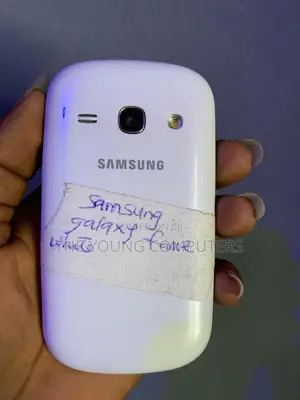 SAMSUNG
Samsung
galaxy Fame
white
YOUNG COMPUTERS